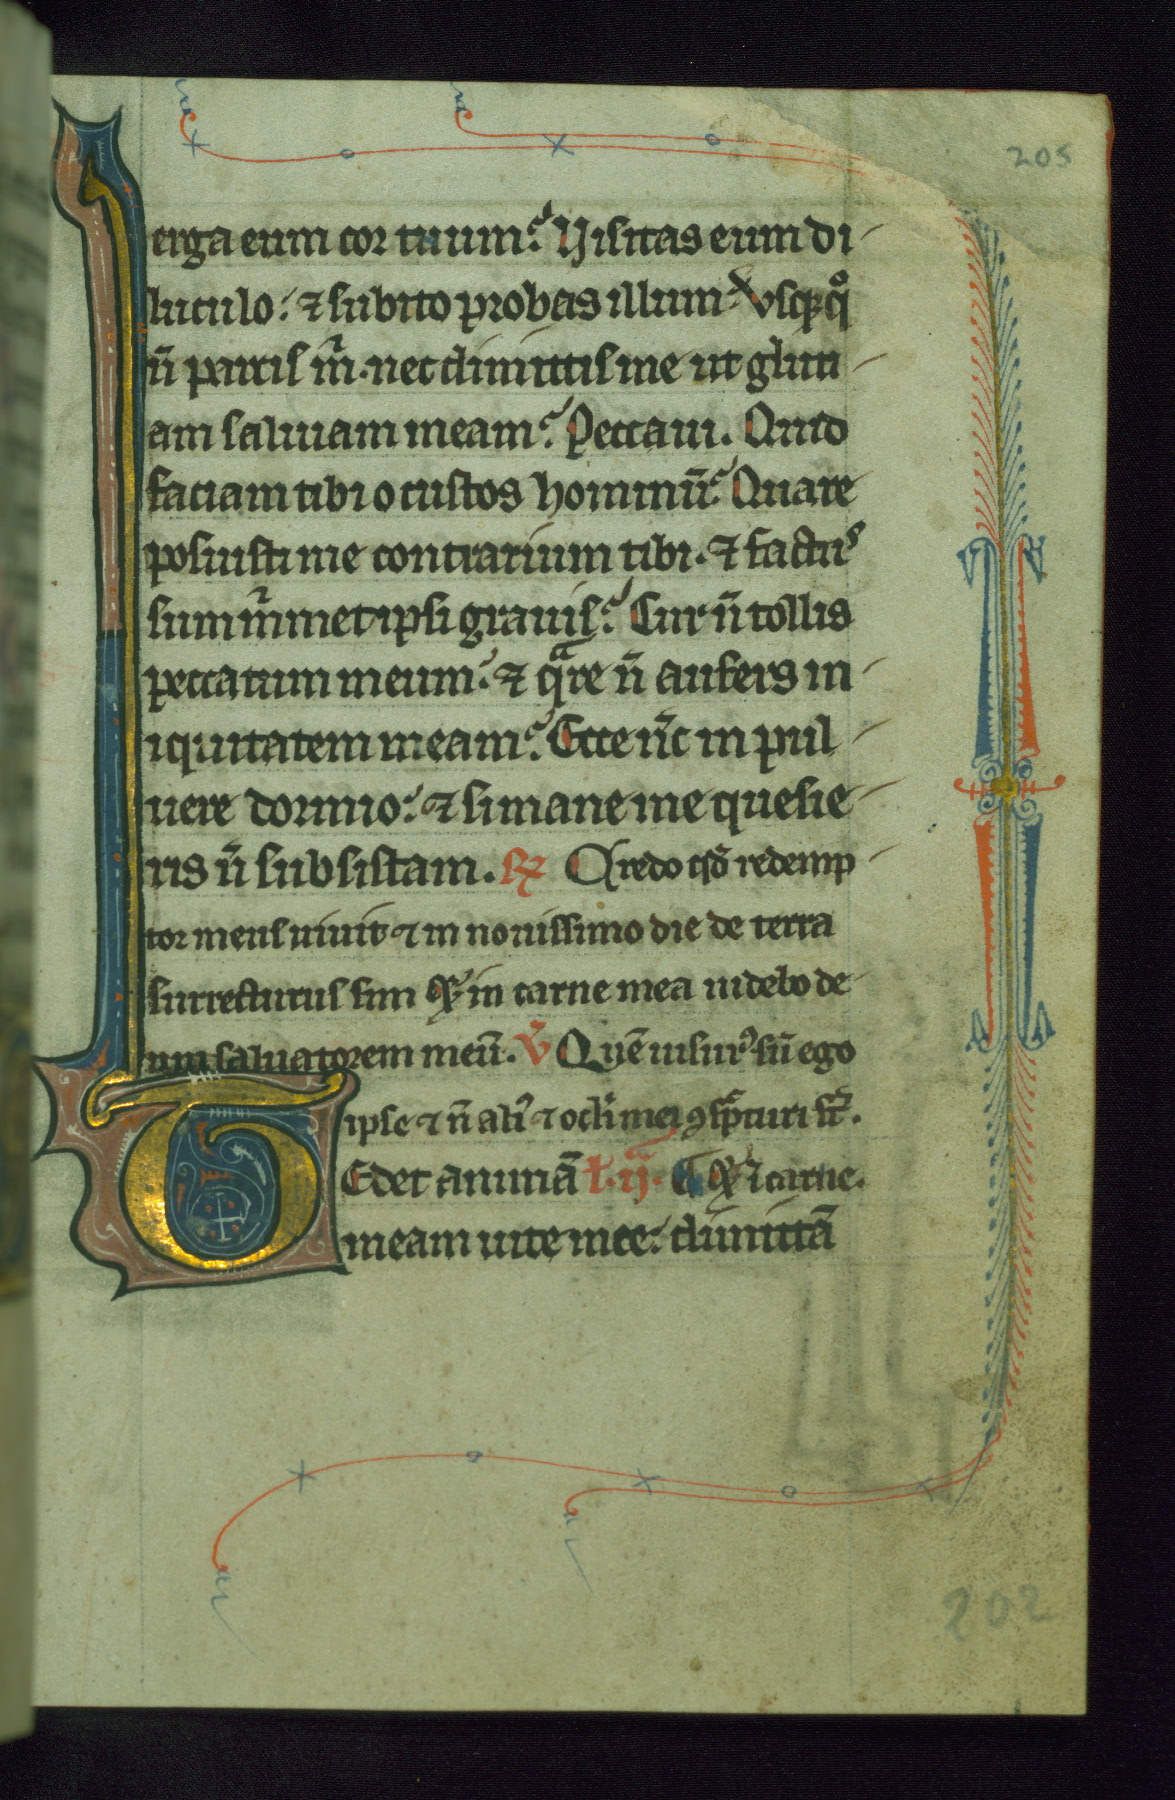 205
erga eum cor tuum? Visitas eum di
luculo: ⁊ subito probas illum? Vsq; qͦ
n̄ parcis m̄. nec dimittis me ut gluti
am saliuam meam? Peccaui. Quid
faciam tibi o custos hominū? Quare
posuisti me contrarium tibi. ⁊ factꝰ
sum m̄met ipsi grauis? Cur n̄ tollis
peccatum meum? ⁊ qͣre n̄ aufers in
iquitatem meam? Ecce nc̄ in pul
uere dormio: ⁊ si mane me quesie
ris n̄ subsistam. R̸ Credo qd̄ redemp
tor meus uiuit ⁊ in nouissimo die de terra
surrecturus sum Et in carne mea uidebo de
um saluatorem meū. V̄ Quē uisurꝰ sū ego
ipse ⁊ n̄ aliꝰ ⁊ oc̄li mei ꝯspc̄turi st̄.
Tedet animā l. ij. Et ī carne.
meam uite mee: dimittā
202